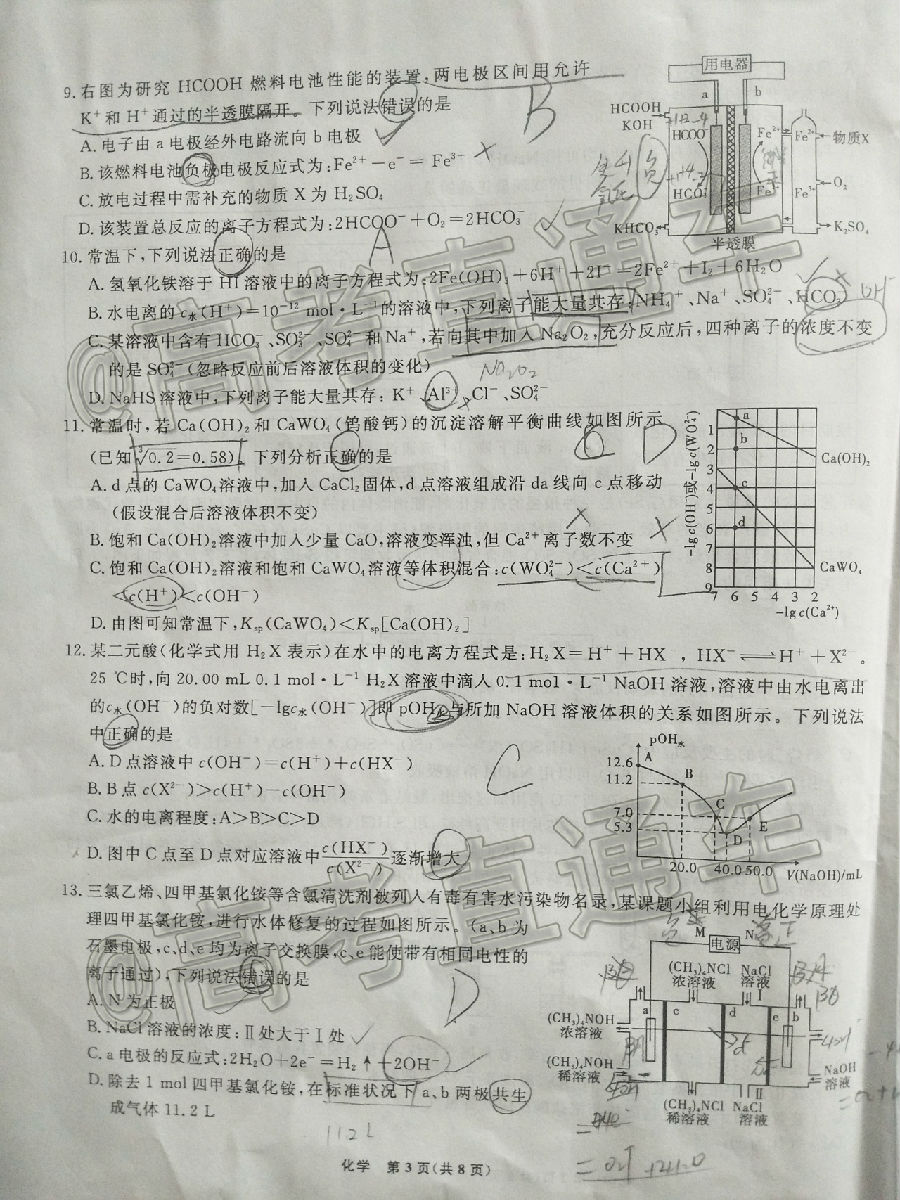 9.右图为研究 HCOOH 燃料电池性能的装置,两电极区间用允许
K⁺和 H⁺通过的半透膜隔开。下列说法错误的是
A.电子由 a 电极经外电路流向 b 电极
B.该燃料电池负极电极反应式为:Fe²⁺-e⁻=Fe³⁺
C.放电过程中需补充的物质 X 为 H₂SO₄
D.该装置总反应的离子方程式为:2HCOO⁻+O₂=2HCO₃⁻
用电器
a b
HCOOH
KOH
HCOO⁻
HCO₃⁻
KHCO₃
Fe²⁺ Fe²⁺
Fe³⁺ Fe³⁺
物质X
O₂
K₂SO₄
半透膜
B
10.常温下,下列说法正确的是
A
A.氢氧化铁溶于 HI 溶液中的离子方程式为:2Fe(OH)₃+6H⁺+2I⁻=2Fe²⁺+I₂+6H₂O
B.水电离的 c水(H⁺)=10⁻¹² mol·L⁻¹的溶液中,下列离子能大量共存:NH₄⁺、Na⁺、SO₄²⁻、HCO₃⁻
C.某溶液中含有 HCO₃⁻、SO₃²⁻、SO₄²⁻和 Na⁺,若向其中加入 Na₂O₂,充分反应后,四种离子的浓度不变
的是 SO₄²⁻(忽略反应前后溶液体积的变化)
D.NaHS 溶液中,下列离子能大量共存: K⁺、Al³⁺、Cl⁻、SO₄²⁻
11.常温时,若 Ca(OH)₂和 CaWO₄(钨酸钙)的沉淀溶解平衡曲线如图所示
(已知∛0.2=0.58)。下列分析正确的是
D
A.d 点的 CaWO₄溶液中,加入 CaCl₂固体,d 点溶液组成沿 da 线向 c 点移动
(假设混合后溶液体积不变)
B.饱和 Ca(OH)₂溶液中加入少量 CaO,溶液变浑浊,但 Ca²⁺离子数不变
C.饱和 Ca(OH)₂溶液和饱和 CaWO₄溶液等体积混合:c(WO₄²⁻)<c(Ca²⁺)
<c(H⁺)<c(OH⁻)
D.由图可知常温下,Ksp(CaWO₄)<Ksp[Ca(OH)₂]
-lgc(OH⁻)或-lgc(WO₄²⁻)
1
2
3
4
5
6
7
8
9
a
b
c
d
Ca(OH)₂
CaWO₄
7 6 5 4 3 2
-lgc(Ca²⁺)
12.某二元酸(化学式用 H₂X 表示)在水中的电离方程式是:H₂X=H⁺+HX⁻,HX⁻⇌H⁺+X²⁻。
25 ℃时,向 20.00 mL 0.1 mol·L⁻¹ H₂X 溶液中滴入 0.1 mol·L⁻¹ NaOH 溶液,溶液中由水电离出
的c水(OH⁻)的负对数[-lgc水(OH⁻)]即 pOH水与所加 NaOH 溶液体积的关系如图所示。下列说法
中正确的是
C
A.D 点溶液中 c(OH⁻)=c(H⁺)+c(HX⁻)
B.B 点 c(X²⁻)>c(H⁺)-c(OH⁻)
C.水的电离程度:A>B>C>D
D.图中 C 点至 D 点对应溶液中c(HX⁻)/c(X²⁻)逐渐增大
pOH水
12.6
11.2
7.0
5.3
A
B
C
D
E
20.0 40.0 50.0 V(NaOH)/mL
13.三氯乙烯、四甲基氯化铵等含氯清洗剂被列入有毒有害水污染物名录,某课题小组利用电化学原理处
理四甲基氯化铵,进行水体修复的过程如图所示。(a、b 为
石墨电极,c、d、e 均为离子交换膜,c、e 能使带有相同电性的
离子通过),下列说法错误的是
D
A.N 为正极
B.NaCl 溶液的浓度:Ⅱ处大于Ⅰ处
C.a 电极的反应式:2H₂O+2e⁻=H₂↑+2OH⁻
D.除去 1 mol 四甲基氯化铵,在标准状况下 a、b 两极共生
成气体 11.2 L
M N
电源
(CH₃)₄NCl NaCl
浓溶液 溶液
Ⅰ
a c d e b
(CH₃)₄NOH
浓溶液
(CH₃)₄NOH
稀溶液
NaOH
溶液
Ⅱ
(CH₃)₄NCl NaCl
稀溶液 溶液
化学 第 3 页(共 8 页)
@高考直通车
@高考直通车